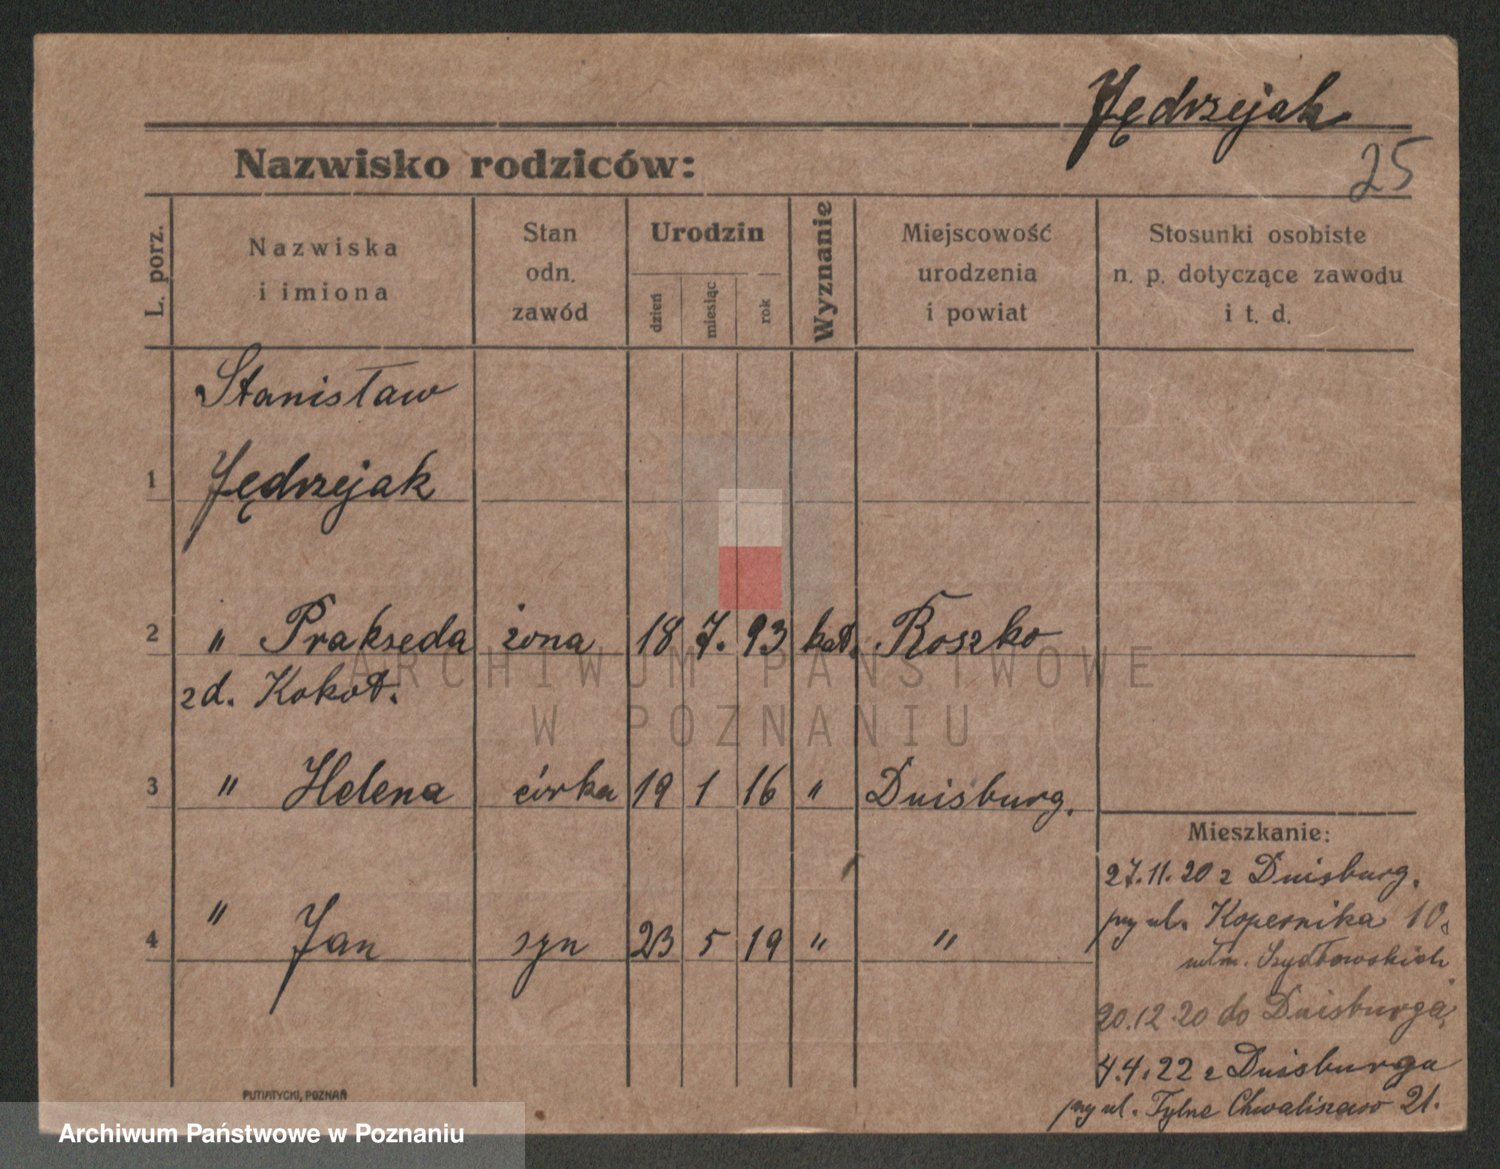 Jędrzejak
25
Nazwisko rodziców:
L. porz.
Nazwiska
i imiona
Stan
odn.
zawód
Urodzin
dzień
miesiąc
rok
Wyznanie
Miejscowość
urodzenia
i powiat
Stosunki osobiste
n. p. dotyczące zawodu
i t. d.
Stanisław
1 Jędrzejak
2 " Prakseda żona 18 7. 93 kat. Roszko
zd. Kokot.
3 " Helena córka 19 1 16 " Duisburg.
4 " Jan syn 23 5 19 " "
Mieszkanie:
27.11.20 z Duisburg.
przy ul. Kopernika 10.
u Szydłowskich
20.12.20 do Duisburga,
4.4.22 z Duisburga
przy ul. Tylne Chwaliszewo 21.
PUTIATYCKI, POZNAŃ
ARCHIWUM PAŃSTWOWE
W POZNANIU
Archiwum Państwowe w Poznaniu